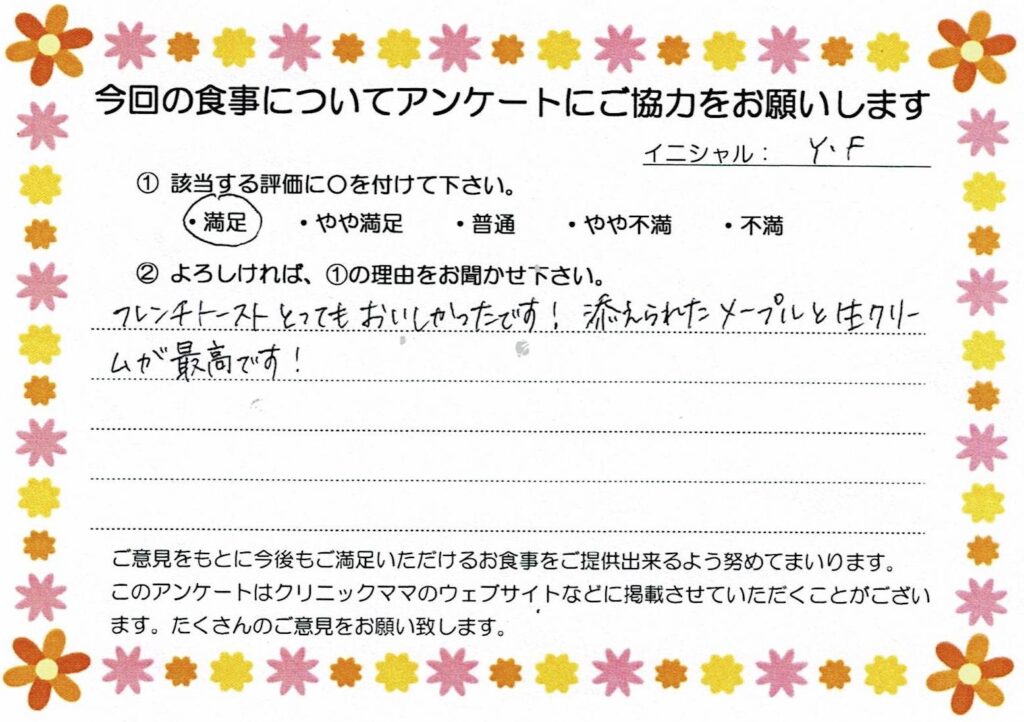 今回の食事についてアンケートにご協力をお願いします
イニシャル： Y.F
① 該当する評価に〇を付けて下さい。
・満足 ・やや満足 ・普通 ・やや不満 ・不満
② よろしければ、①の理由をお聞かせ下さい。
フレンチトーストとってもおいしかったです！ 添えられたメープルと生クリー
ムが最高です！
ご意見をもとに今後もご満足いただけるお食事をご提供出来るよう努めてまいります。
このアンケートはクリニックママのウェブサイトなどに掲載させていただくことがござい
ます。たくさんのご意見をお願い致します。